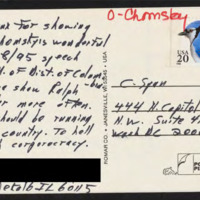 O-Chomsky
for showing
Chomsky's wonderful
8/95 speech
. of Dist. of Colum
show Ralph
for more often.
should be running
country. To hell
corporocracy.
Dekalb IL 60115
ROMAR CO. • JANESVILLE, WI 53545 • USA
USA
20
C-Span
444 N. Capitol
N.W. Suite 4
Wash DC 200